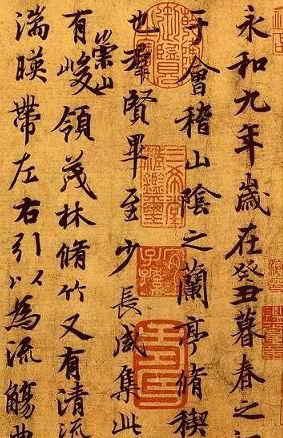 永和九年歲在癸丑暮春之
于會稽山陰之蘭亭脩稧
也羣賢畢至少長咸集此
有崇山峻領茂林脩竹又有清流
湍暎帶左右引以為流觴曲
三希堂精鑑璽
宜子孫